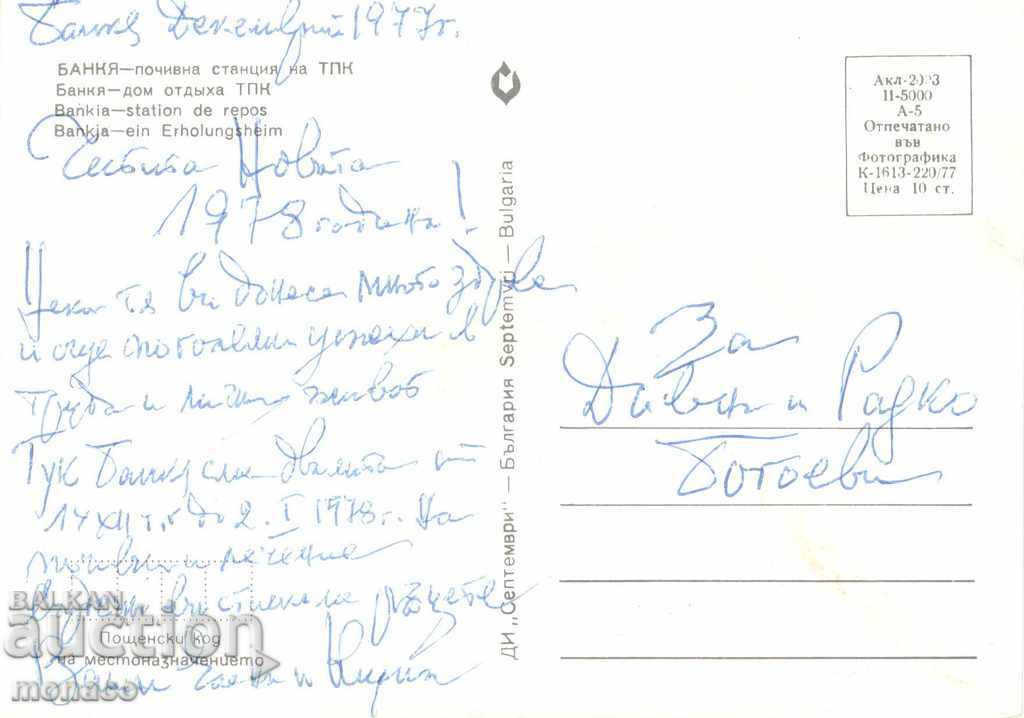 Банкя Декември 1977г.
БАНКЯ—почивна станция на ТПК
Банкя—дом отдыха ТПК
Bankia—station de repos
Bankja—ein Erholungsheim
Честита Новата
1978 година!
Нека тя ви донесе много здраве
и още успехи в
труда и личния живот
Тук Банкя сме двамата от
14 XII т.г до 2. I 1978г. На
почивка и лечение
ви стискаме ръцете
Ваши и
Пощенски код
на местоназначението
ДИ „Септември" — България Septemvri — Bulgaria
Акл-2003
II-5000
А-5
Отпечатано
във
Фотографика
К-1613-220/77
Цена 10 ст.
За
и Радко
Ботоеви
BALKAN
auction
monaco